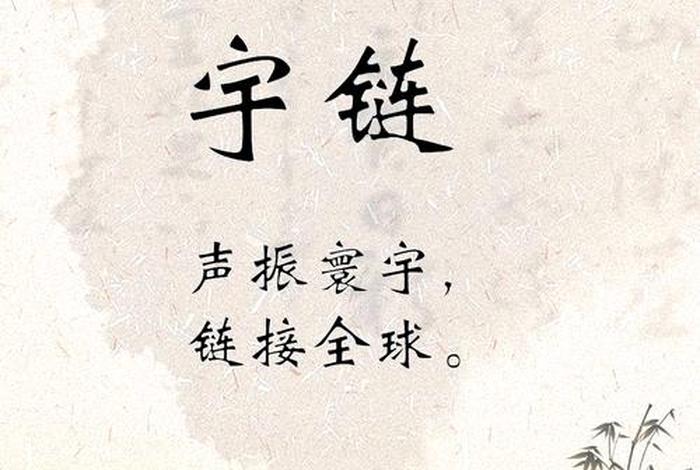 宇链
声振寰宇，
链接全球。